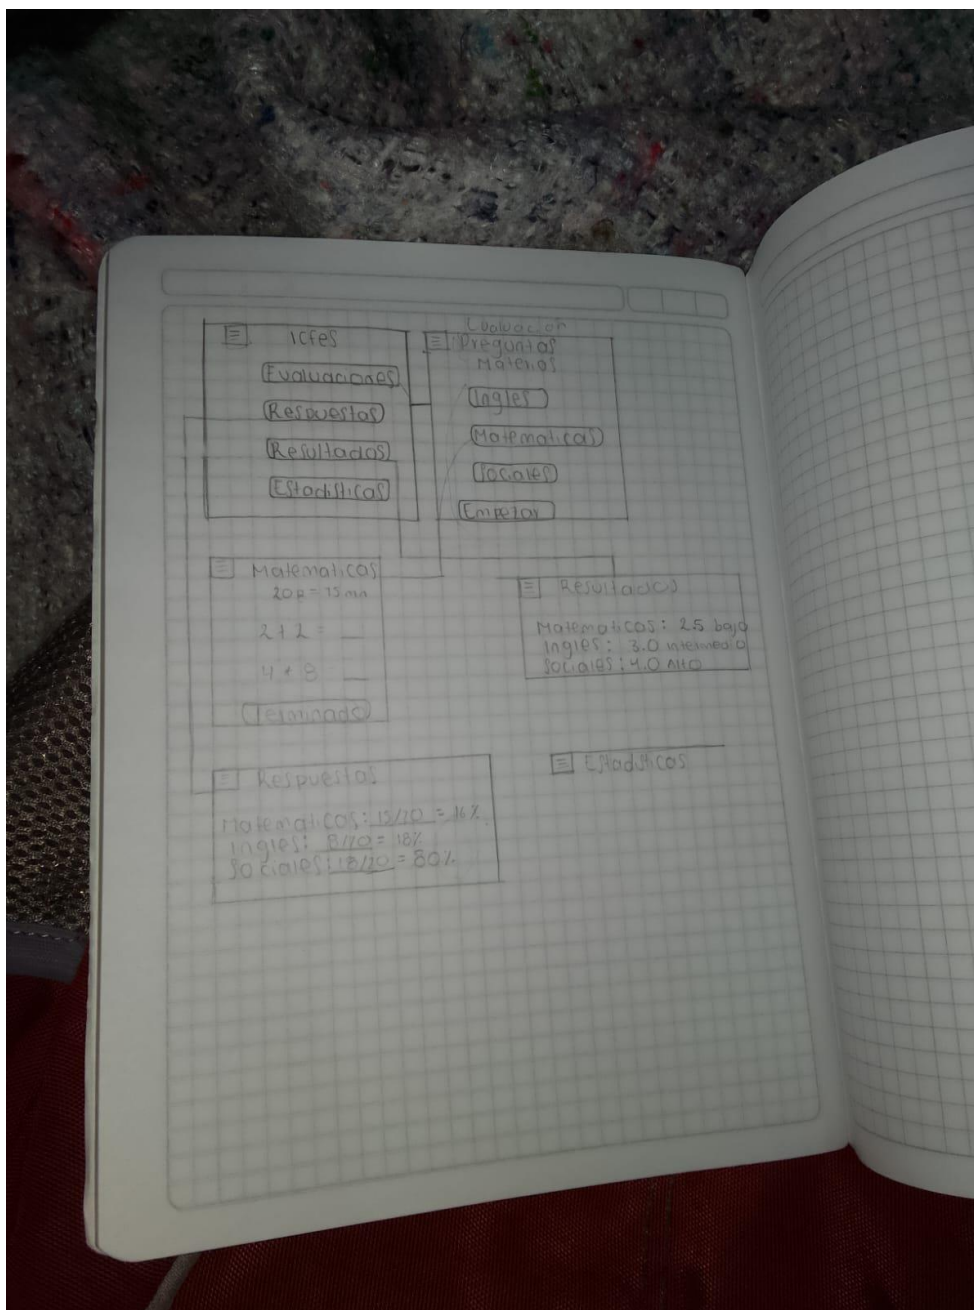 Icfes
Evaluaciones
Respuestas
Resultados
Estadisticas
Evaluacion
Preguntas
Materias
Ingles
Matematicas
Sociales
Empezar
Matematicas
20p = 15 min
2 + 2 = __
4 + 8 __
Terminado
Resultados
Matematicas: 2.5 bajo
Ingles: 3.0 intermedio
Sociales: 4.0 Alto
Respuestas
Matematicas: 15/20 = 16%
Ingles: 8/20 = 18%
Sociales: 18/20 = 80%
Estadisticas